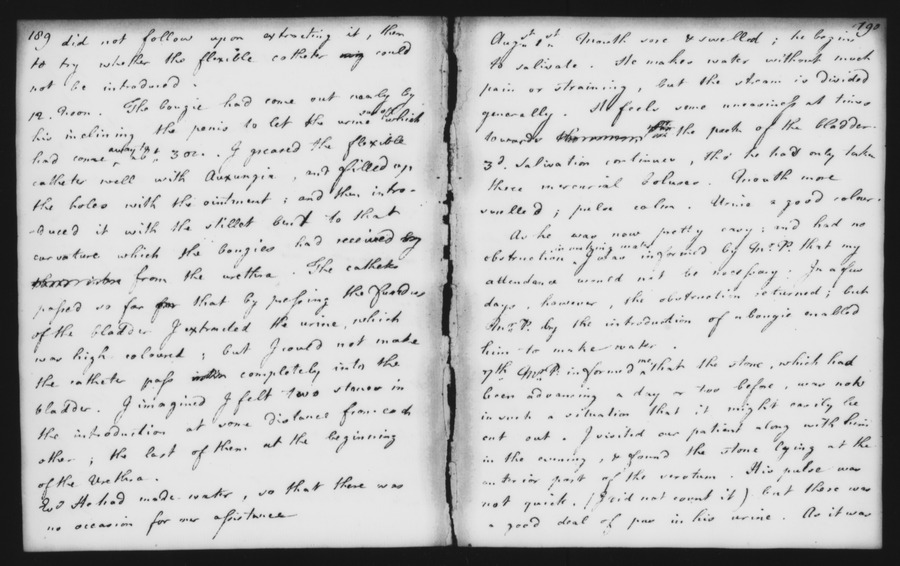 189
did not follow upon extracting it, then
to try whether the flexible catheter could
not be introduced.
12. Noon. The bougie had come out nearly by
his inclining the penis to let the urine which
had come away to abt 3 oz. I greased the flexible
catheter well with Auxungia, and filled up
the holes with the ointment; and then intro-
-duced it with the stillet bent to that
curvature which the bougies had received
from the urethra. The catheter
passed so far that by pressing the Fundus
of the bladder I extracted the urine, which
was high coloured; but I could not make
the catheter pass completely into the
bladder. I imagined I felt two stones in
the introduction at some distance from each
other; the last of them at the beginning
of the Urethra.
He had made water, so that there was
no occasion for our assistance
190
Augst 1st Mouth sore & swelled; he begins
to salivate. He makes water without much
pain or straining, but the stream is divided
generally. He feels some uneasiness at times
towards the neck of the bladder.
3d. Salivation continues, tho' he had only taken
three mercurial boluses. Mouth more
swelled; pulse calm. Urine a good colour.
As he was now pretty easy; and had no
obstruction in making water I was informed by Mr. P. that my
attendance would not be necessary. In a few
days, however, the obstruction returned; but
Mr. P. by the introduction of a bougie enabled
him to make water.
17th Mr. P. informed me that the stone, which had
been advancing a day or two before, was now
in such a situation that it might easily be
cut out. I visited our patient along with him
in the evening, & found the stone lying at the
anterior part of the scrotum. His pulse was
not quick, (I did not count it) but there was
a good deal of pus in his urine. As it was